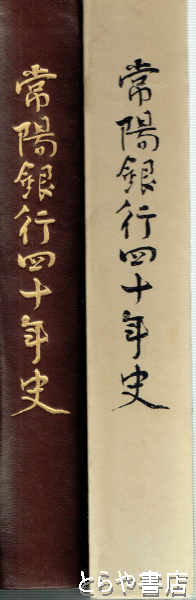 常陽銀行四十年史
常陽銀行四十年史
とらや書店